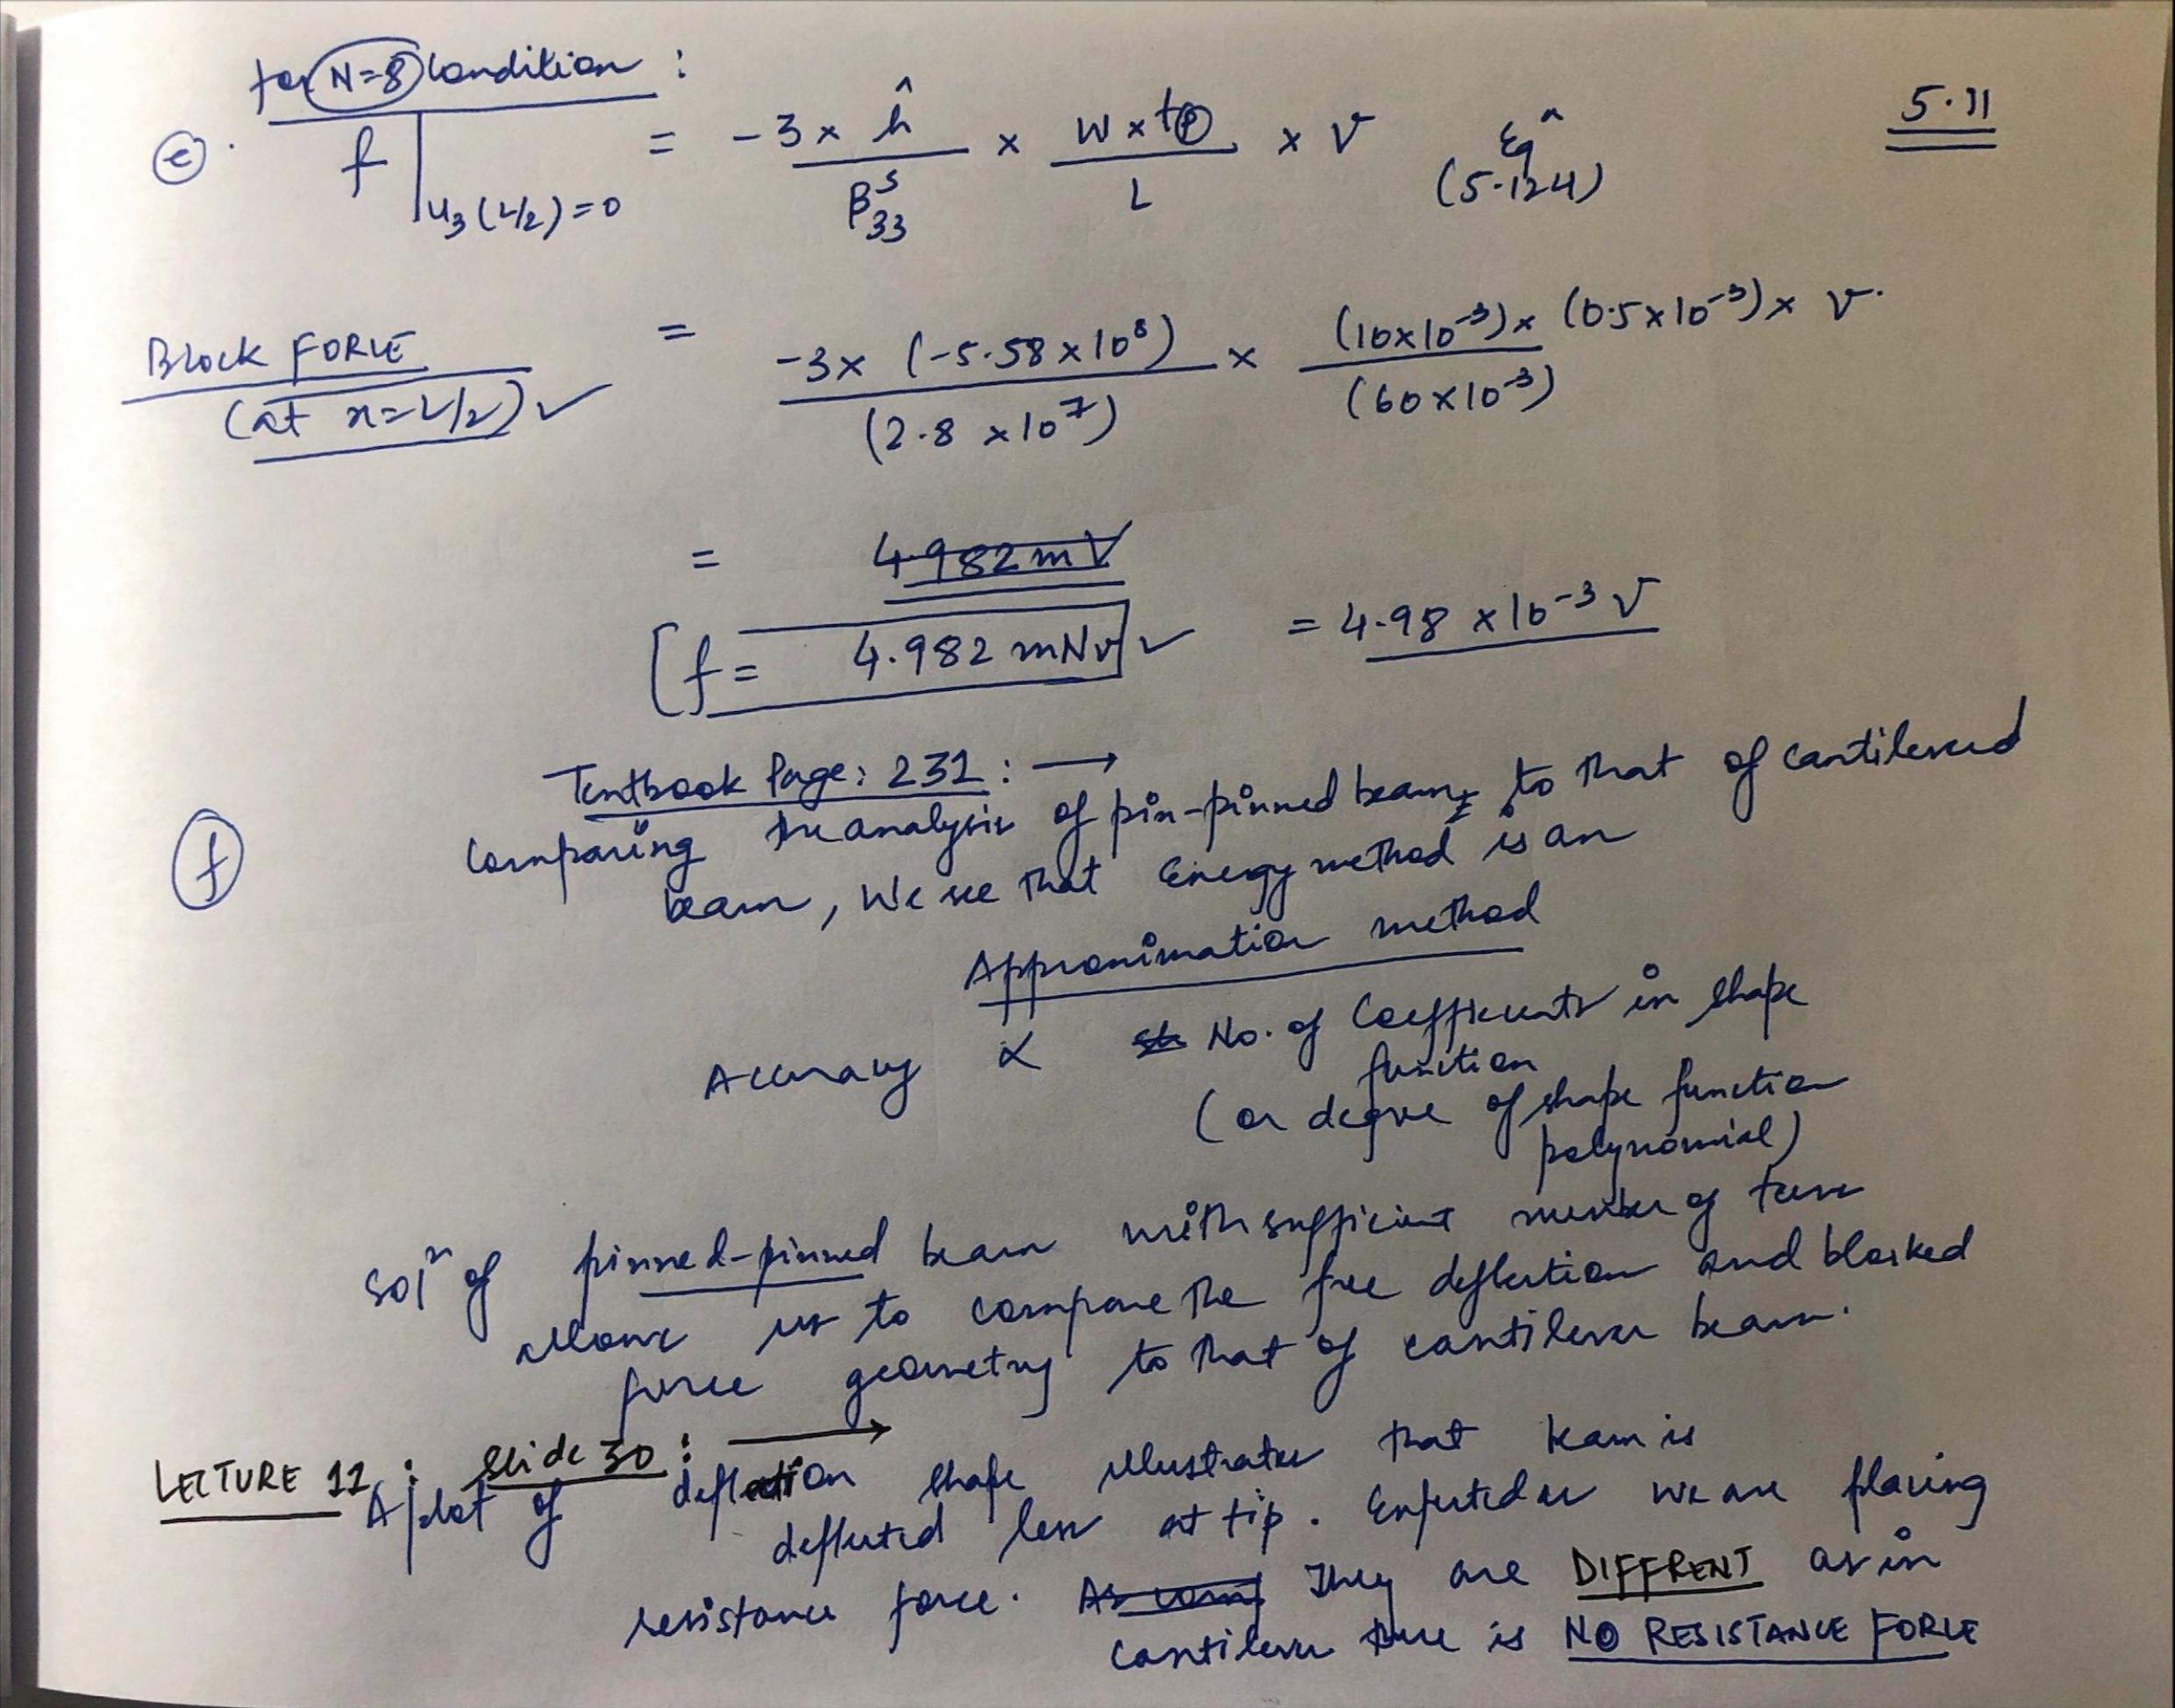 for N=8 Condition :
5.11
(e). f |u₃(L/2)=0 = -3 × ĥ / β₃₃ˢ × W × tp / L × V Eqⁿ (5.124)
Block FORCE (at x=L/2) ✓ = -3 × (-5.58 × 10⁸) / (2.8 × 10⁷) × (10×10⁻³) × (0.5×10⁻³) × V. / (60×10⁻³)
= 4.982 mV
[f = 4.982 mNV ✓ = 4.98 × 10⁻³ V
Textbook Page: 231 : →
(f) Comparing the analysis of pin-pinned beams to that of cantilevered
beam, We see that Energy method is an
Approximation method
Accuracy ∝ No. of Coefficients in shape
function
(or degree of shape function
polynomial)
Solⁿ of pinned-pinned beam with sufficient number of term
allows us to compare the free deflection and blocked
force geometry to that of cantilever beam.
LECTURE 11 : slide 30 : →
A plot of deflection shape illustrates that beam is
deflected less at tip. Expected as we are placing
resistance force. They are DIFFRENT as in
cantilever there is NO RESISTANCE FORCE